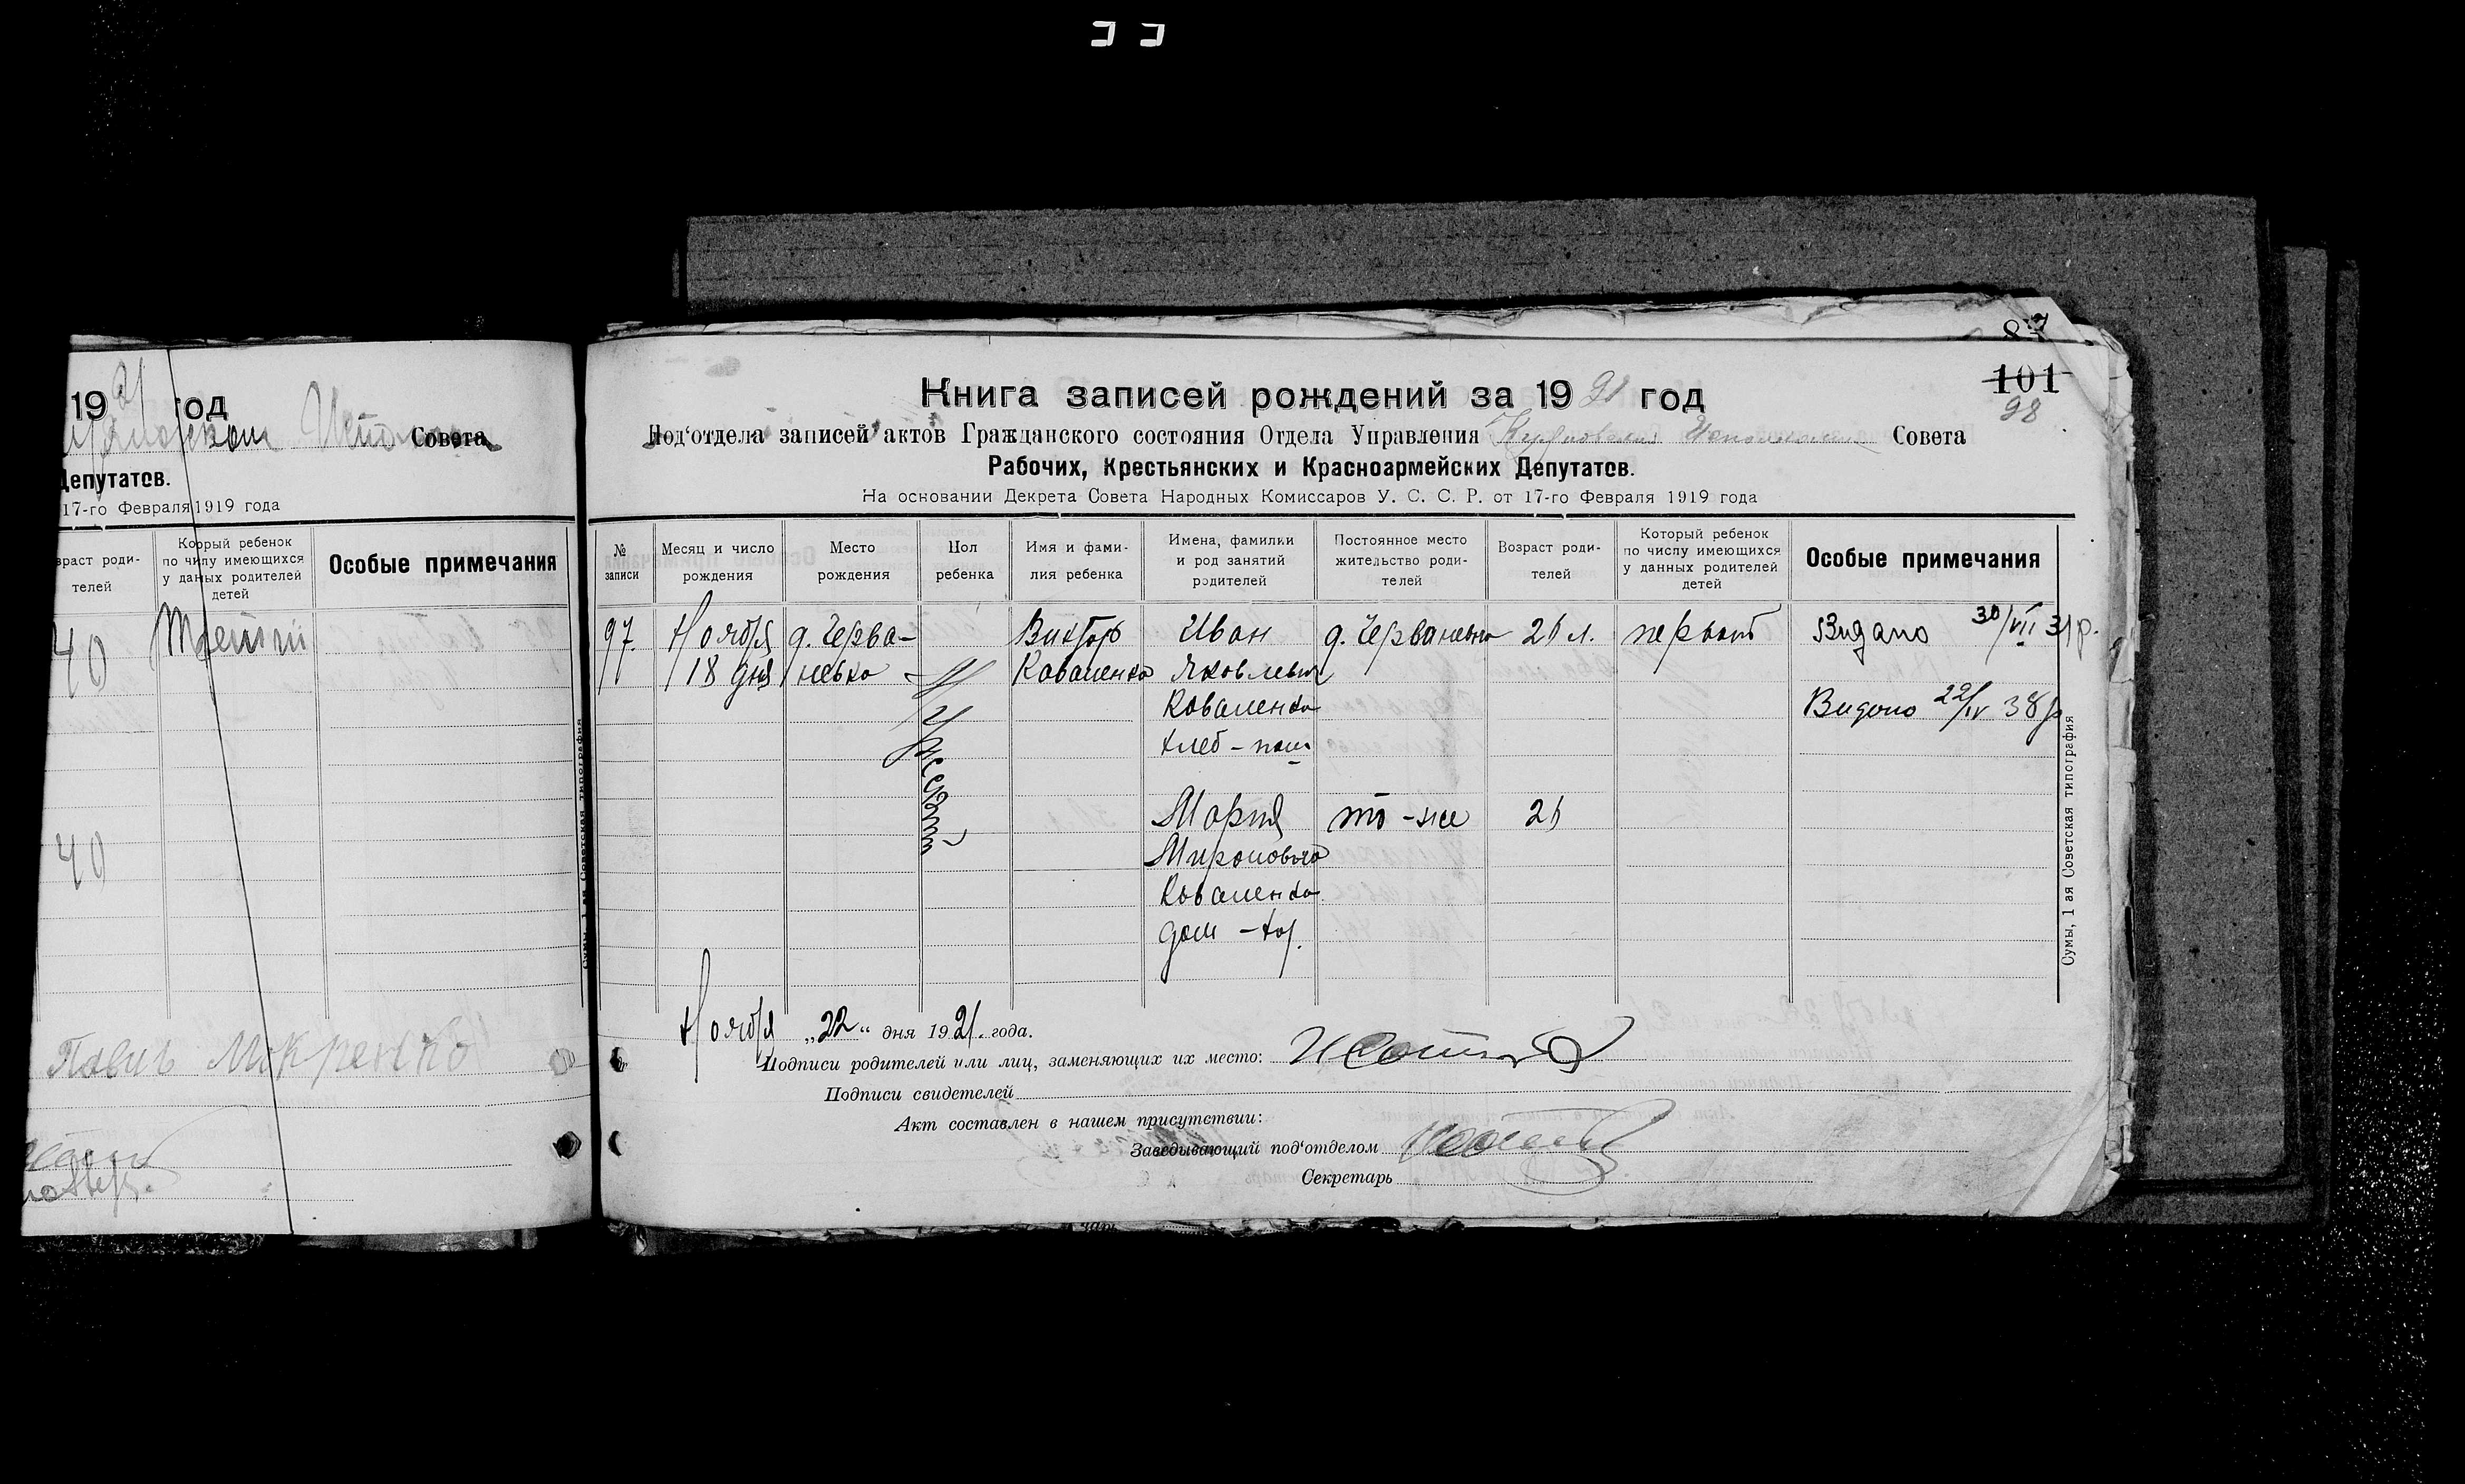 19 21 год
Совета
Депутатов.
17-го Февраля 1919 года
зраст роди-
телей
Коорый ребенок
по чилу имеющихся
у даных родителей
детей
Особые примечания
40
Третий
40
Павилъ Мокренко
Сумы, 1 ая Советская типография
87
101
98
Книга записей рождений за 19 21 год
Под‘отдела записей актов Гражданского состояния Отдела Управления Совета
Рабочих, Крестьянских и Красноармейских Депутатов.
На основании Декрета Совета Народных Комиссаров У. С. С. Р. от 17-го Февраля 1919 года
№
записи
Месяц и число
рождения
Место
рождения
Пол
ребенка
Имя и фами-
лия ребенка
Имена, фамилии
и род занятий
родителей
Постоянное место
жительство роди-
телей
Возраст роди-
телей
Который ребенок
по числу имеющихся
у данных родителей
детей
Особые примечания
97.
Ноября
18 дня
д. Черва-
невка
Мужеский
Виктор
Коваленко
Иван
Яковлевич
Коваленко
хлеб-паш
д. Червоневка
21 л.
первый
Видано 30/VII 31р.
Видано 22/IV 38р
Мария
Мироновна
Коваленко
дом-хоз.
то-же
21
Ноября „22“ дня 1921. года.
Подписи родителей или лиц, заменяющих их место:
Подписи свидетелей
Акт составлен в нашем присутствии:
Заведывающий под‘отделом
Секретарь
Сумы, 1 ая Советская типография